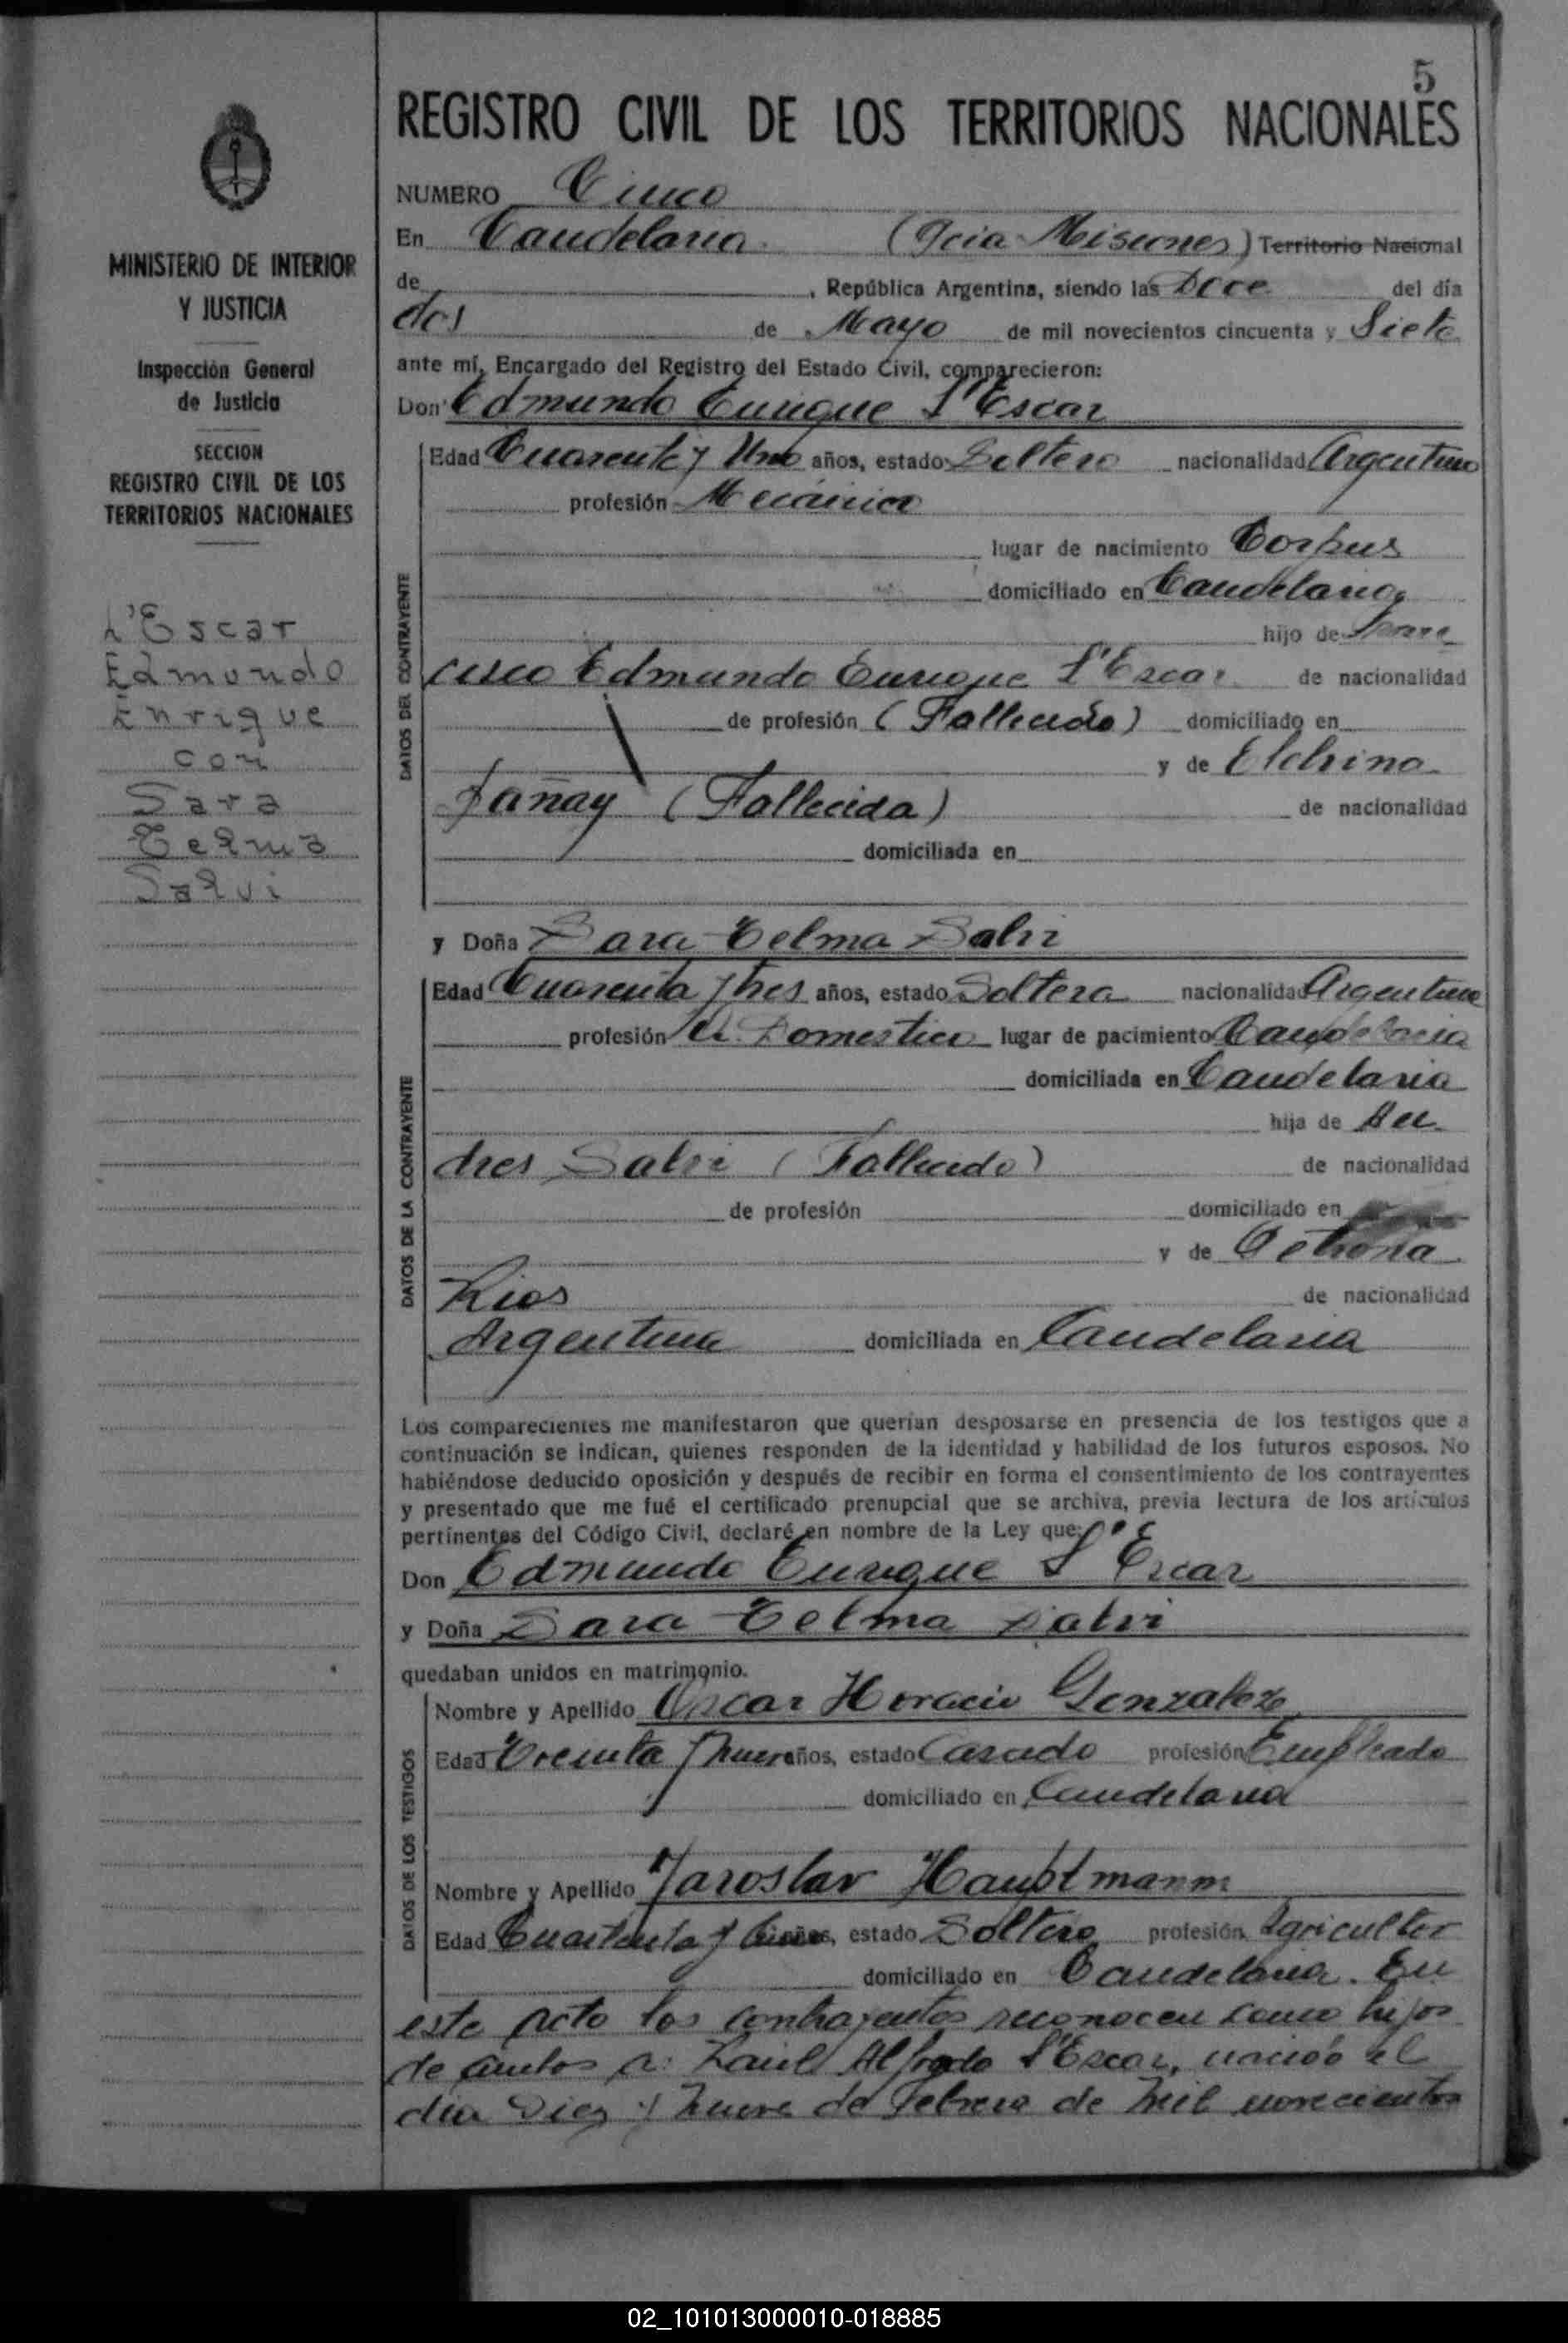 5
REGISTRO CIVIL DE LOS TERRITORIOS NACIONALES
MINISTERIO DE INTERIOR
Y JUSTICIA
Inspección General
de Justicia
SECCION
REGISTRO CIVIL DE LOS
TERRITORIOS NACIONALES
L'Escar
Edmundo
Enrique
con
Sara
Telma
Salvi
NUMERO Cinco
En Candelaria (Pcia Misiones) Territorio Nacional
de , República Argentina, siendo las Doce del día
dos de Mayo de mil novecientos cincuenta y Siete
ante mí, Encargado del Registro del Estado Civil, comparecieron:
Don Edmundo Enrique L'Escar
DATOS DEL CONTRAYENTE
Edad Cuarenta y Uno años, estado Soltero nacionalidad Argentino
profesión Mecánico
lugar de nacimiento Corpus
domiciliado en Candelaria
hijo de Fran
cisco Edmundo Enrique L'Escar de nacionalidad
de profesión (Fallecido) domiciliado en
y de Elchina
(Fallecida) de nacionalidad
domiciliada en
y Doña Sara Telma Salvi
DATOS DE LA CONTRAYENTE
Edad Cuarenta y tres años, estado Soltera nacionalidad Argentina
profesión Q. Domestico lugar de nacimiento Candelaria
domiciliada en Candelaria
hija de An
dres Salvi (Fallecido) de nacionalidad
de profesión domiciliado en
y de Petrona
Rios de nacionalidad
Argentina domiciliada en Candelaria
Los comparecientes me manifestaron que querían desposarse en presencia de los testigos que a
continuación se indican, quienes responden de la identidad y habilidad de los futuros esposos. No
habiéndose deducido oposición y después de recibir en forma el consentimiento de los contrayentes
y presentado que me fué el certificado prenupcial que se archiva, previa lectura de los artículos
pertinentes del Código Civil, declaré en nombre de la Ley que:
Don Edmundo Enrique L'Escar
y Doña Sara Telma Salvi
quedaban unidos en matrimonio.
DATOS DE LOS TESTIGOS
Nombre y Apellido Oscar Horacio Gonzalez
Edad Treinta y nueve años, estado Casado profesión Empleado
domiciliado en Candelaria
Nombre y Apellido Jaroslav Hauptmann
Edad Cuarenta y años, estado Soltero profesión Agricultor
domiciliado en Candelaria. En
este acto los contrayentes reconocen como hijos
de ambos a: Raúl Alfredo L'Escar, nacido el
día Diez y nueve de Febrero de mil novecientos
02_101013000010-018885